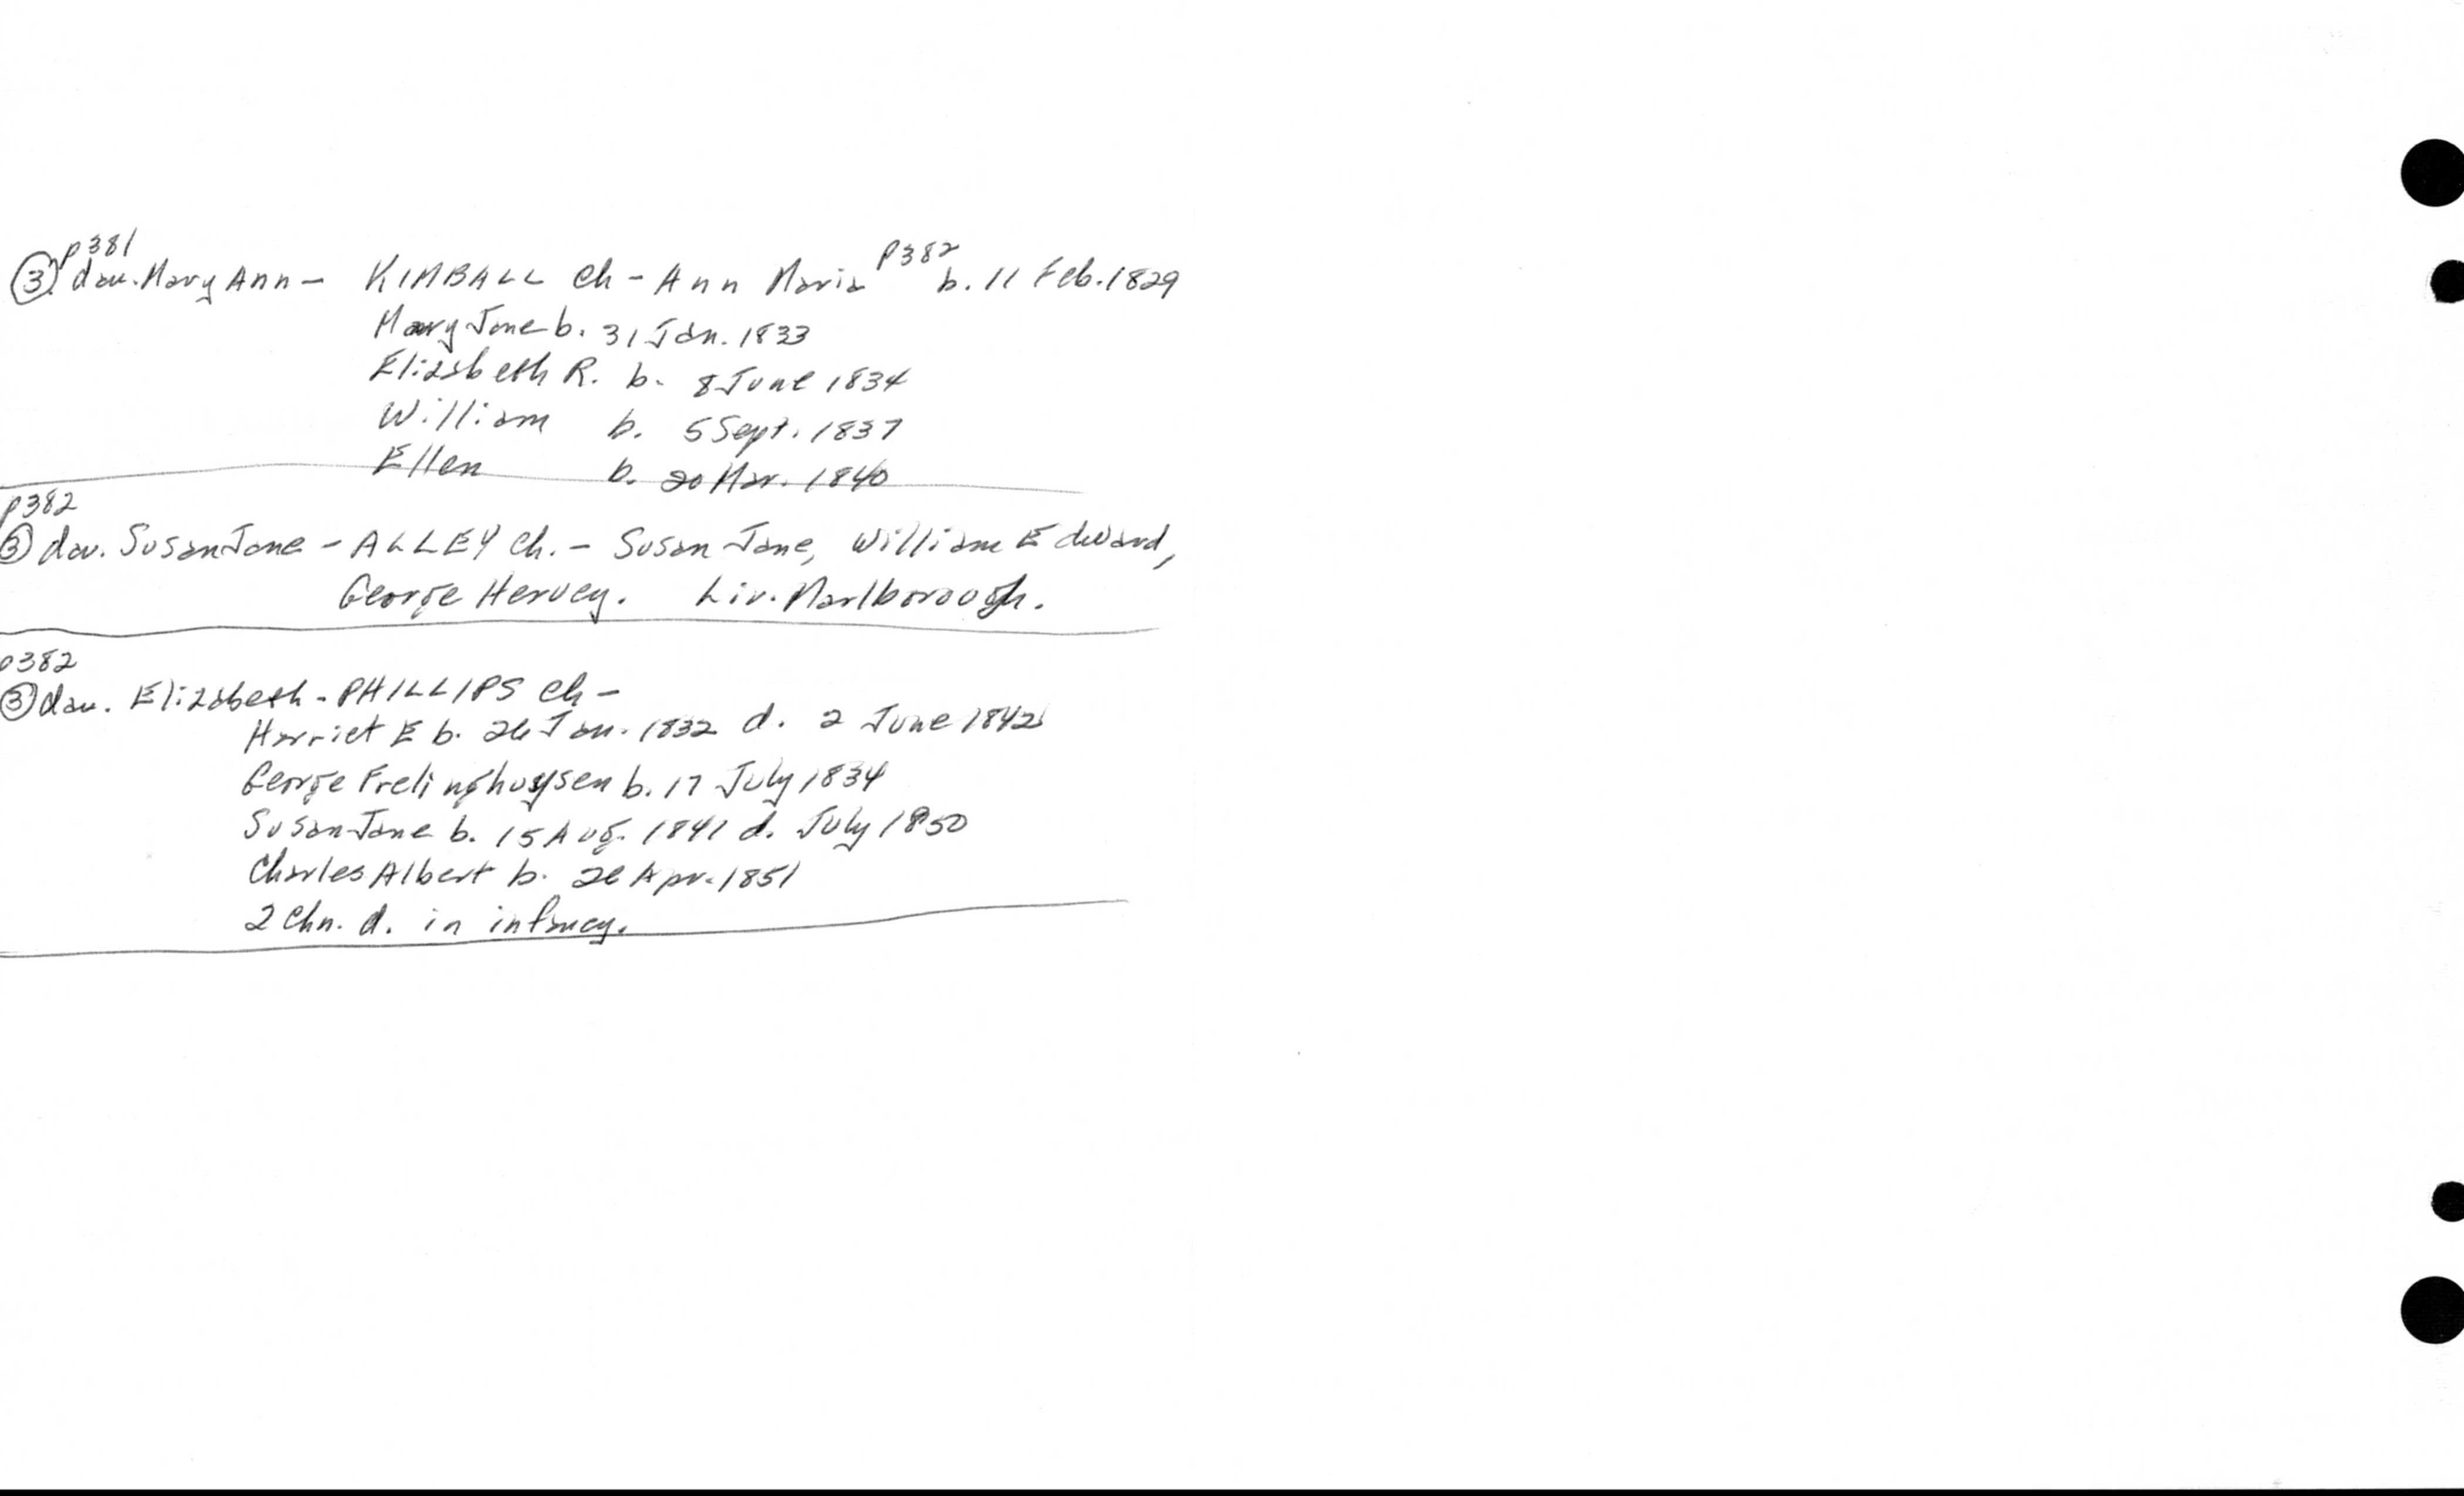 p381
③ dau. Mary Ann – KIMBALL Ch – Ann Maria p382 b. 11 Feb. 1829
Mary Jane b. 31 Jan. 1833
Elizabeth R. b. 8 June 1834
William b. 5 Sept. 1837
Ellen b. 20 Mar. 1840
p382
③ dau. Susan Jane – ALLEY Ch. – Susan Jane, William Edward,
George Hervey. Liv. Marlborough.
p382
③ dau. Elizabeth – PHILLIPS Ch –
Harriet E b. 26 Jan. 1832 d. 2 June 1842
George Frelinghuysen b. 17 July 1834
Susan Jane b. 15 Aug. 1841 d. July 1850
Charles Albert b. Apr. 1851
2 Chn. d. in infancy.